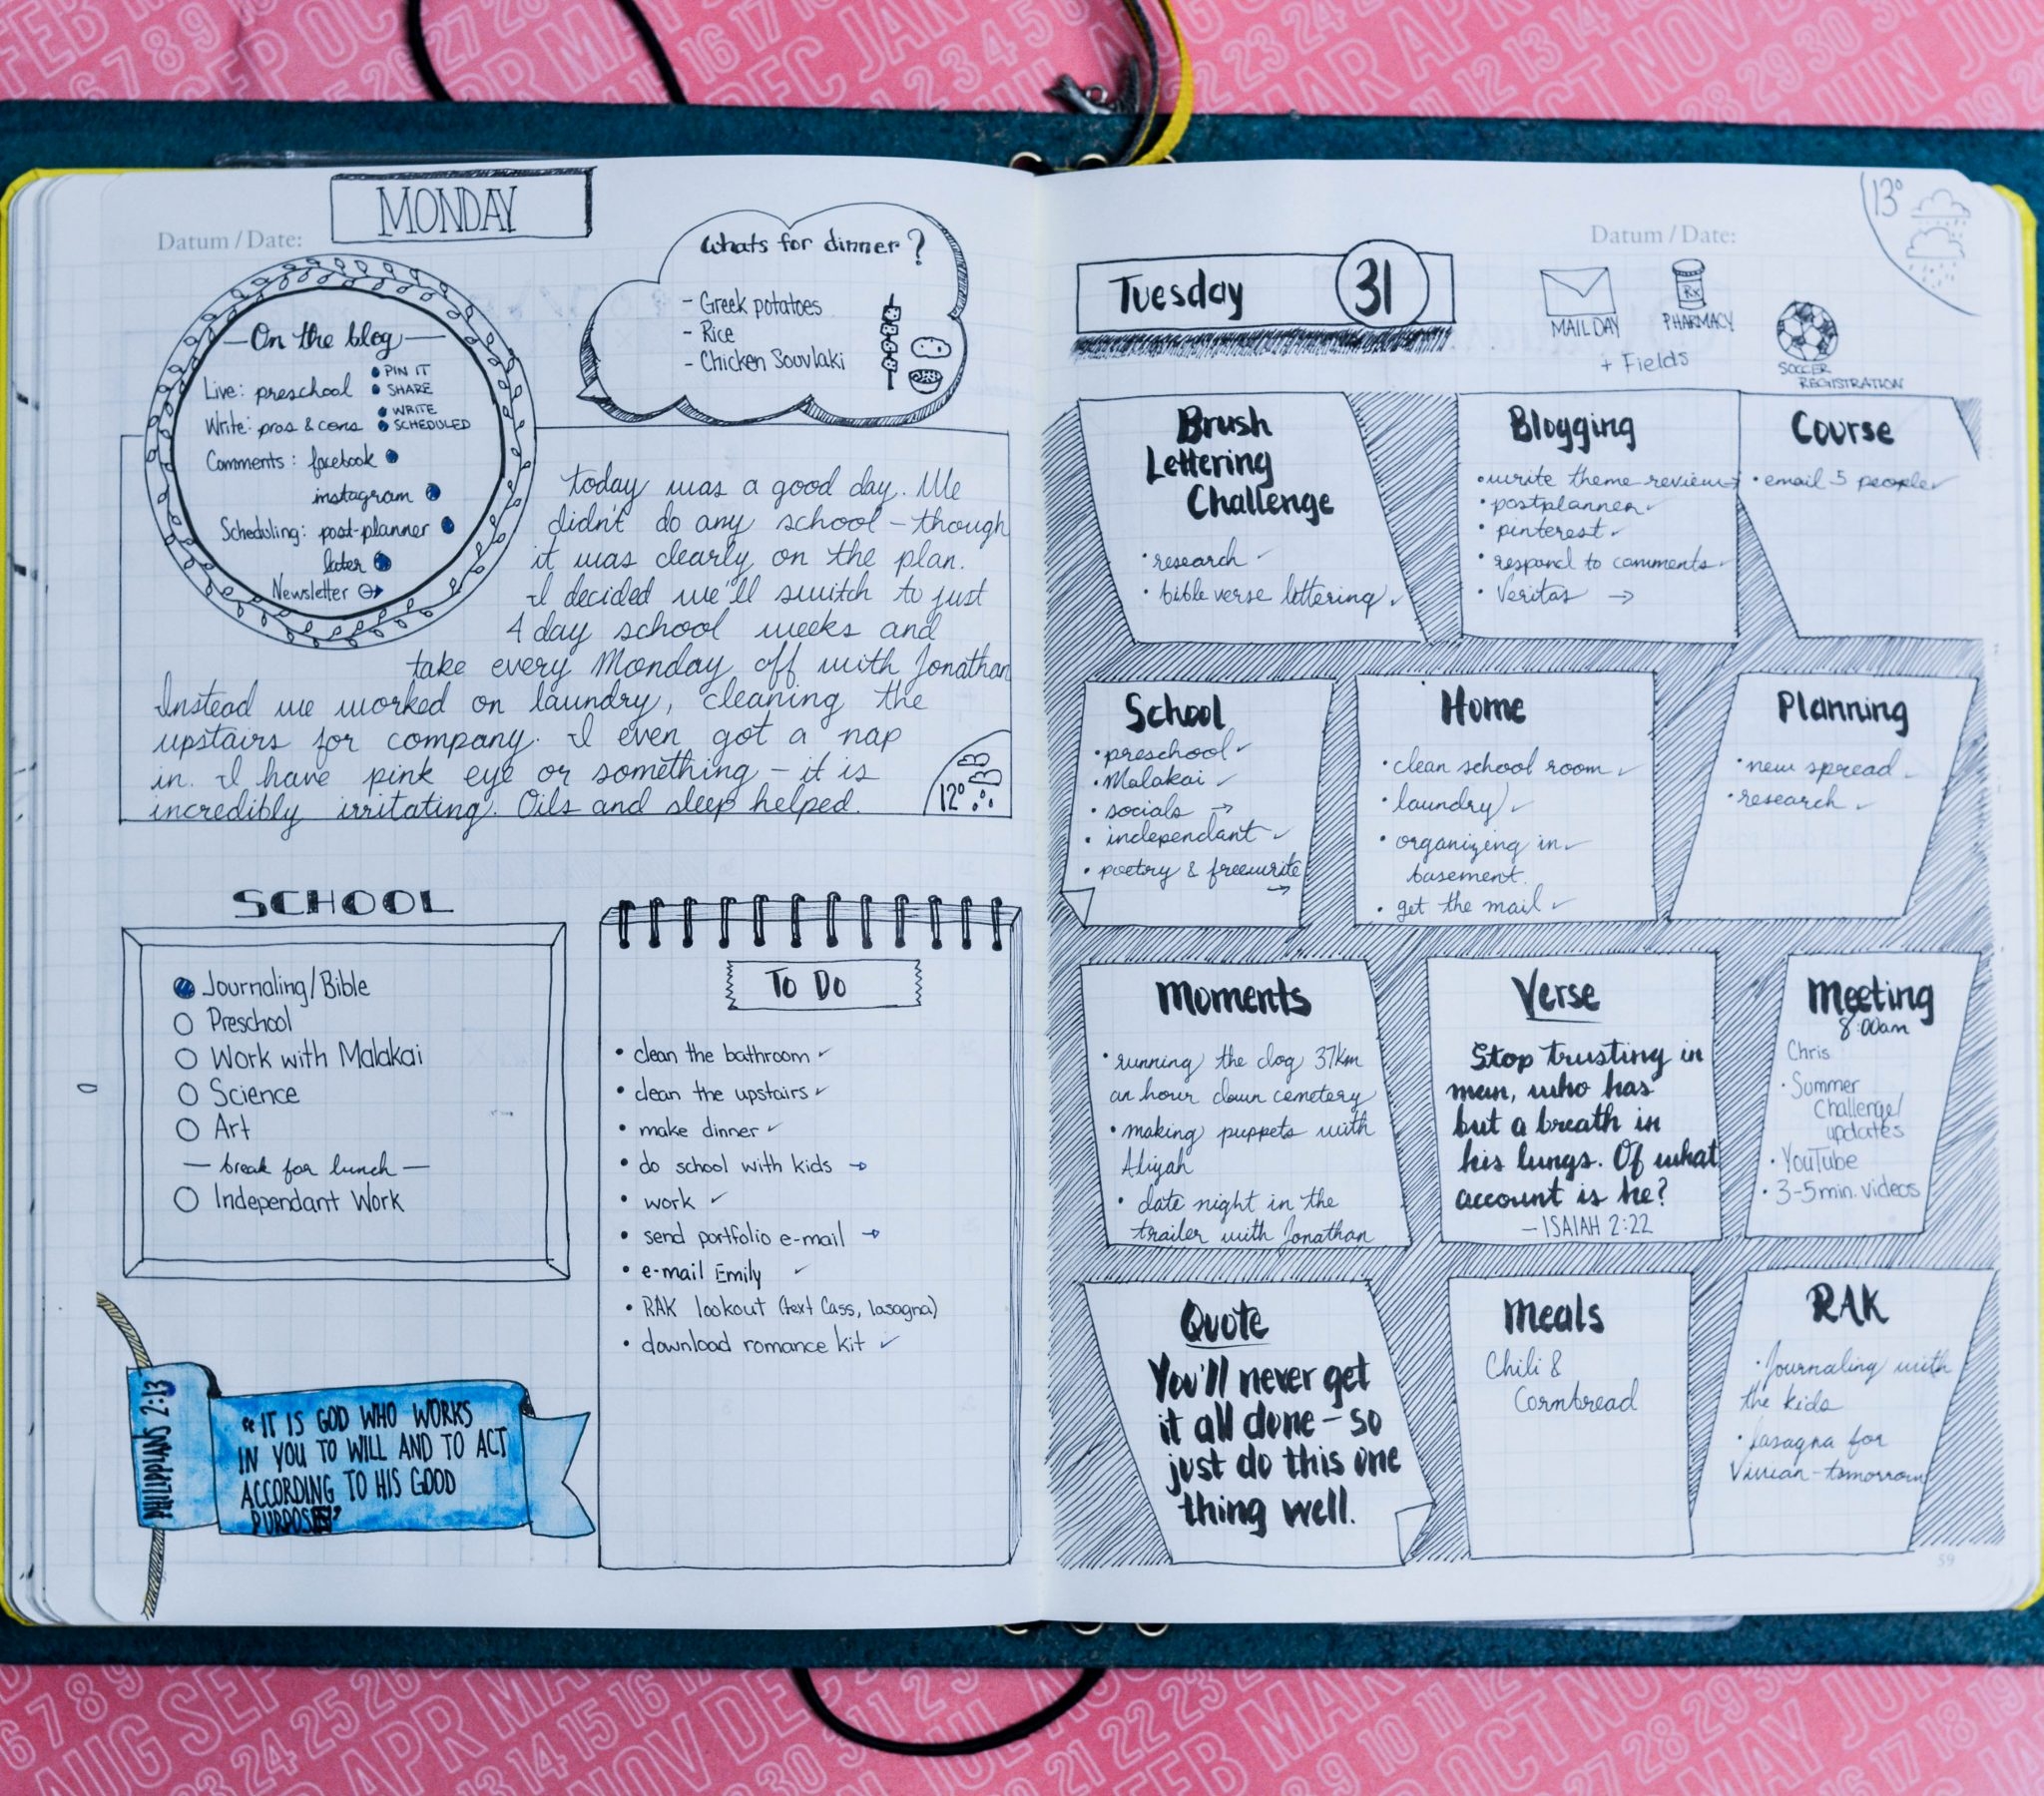 MONDAY
Datum / Date:
Whats for dinner?
- Greek potatoes
- Rice
- Chicken Souvlaki
On the blog
Live: preschool • PIN IT
• SHARE
Write: pros & cons • WRITE
• SCHEDULED
Comments: facebook
instagram
Scheduling: post-planner
later
Newsletter
today was a good day. We
didn't do any school - though
it was clearly on the plan.
I decided we'll switch to just
4 day school weeks and
take every Monday off with Jonathan
Instead we worked on laundry, cleaning the
upstairs for company. I even got a nap
in. I have pink eye or something - it is
incredibly irritating. Oils and sleep helped.
12°
SCHOOL
Journaling/Bible
Preschool
Work with Malakai
Science
Art
— break for lunch —
Independant Work
To Do
• clean the bathroom ✓
• clean the upstairs ✓
• make dinner ✓
• do school with kids →
• work ✓
• send portfolio e-mail →
• e-mail Emily ✓
• RAK lookout (text Cass, lasagna)
• download romance kit ✓
PHILIPPIANS 2:13
"IT IS GOD WHO WORKS
IN YOU TO WILL AND TO ACT
ACCORDING TO HIS GOOD
PURPOSE"
Datum / Date:
13°
Tuesday 31
MAIL DAY
PHARMACY
+ Fields
SOCCER
REGISTRATION
Brush
Lettering
Challenge
• research ✓
• bible verse lettering ✓
Blogging
• write theme review →
• postplanner ✓
• pinterest ✓
• respond to comments ✓
• Veritas →
Course
• email 5 people ✓
School
• preschool ✓
• Malakai ✓
• socials →
• independant ✓
• poetry & freewrite
→
Home
• clean school room ✓
• laundry ✓
• organizing in ✓
basement
• get the mail ✓
Planning
• new spread ✓
• research ✓
Moments
• running the dog 37km
an hour down cemetery
• making puppets with
Aliyah
• date night in the
trailer with Jonathan
Verse
Stop trusting in
man, who has
but a breath in
his lungs. Of what
account is he?
— ISAIAH 2:22
Meeting
8:00am
Chris
• Summer
Challenge/
updates
• YouTube
• 3-5 min. videos
Quote
You'll never get
it all done - so
just do this one
thing well.
Meals
Chili &
Cornbread
RAK
• Journaling with
the kids
• lasagna for
Vivian - tomorrow
59